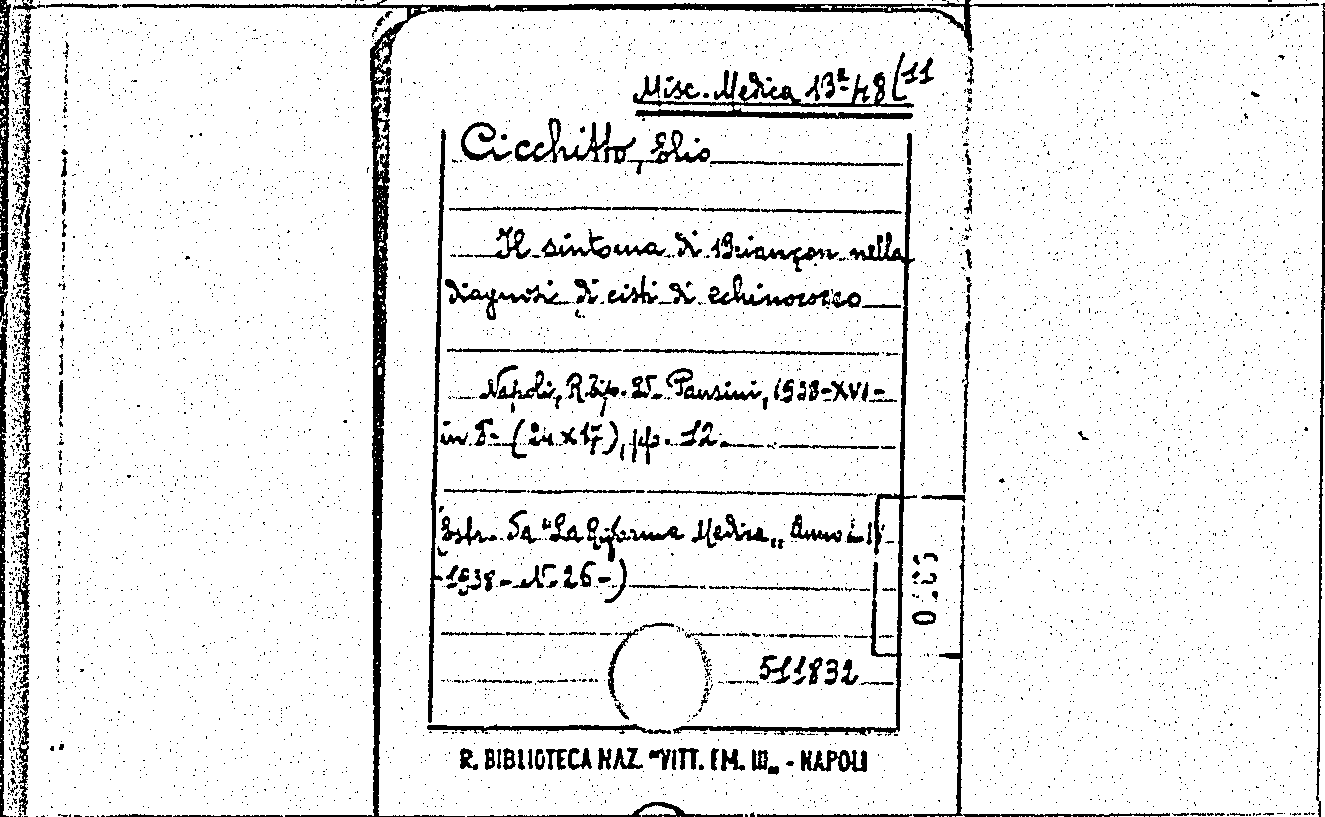 Misc. Medica 13ª 48(11
Cicchitto, Elio
Il sintoma di Briançon nella
diagnosi di cisti di echinococco
Napoli, R. Tip. V. Pansini, 1938-XVI-
in 8- (24 x 17), pp. 12.
(Estr. da "La Riforma Medica„ Anno LIV
-1938- N. 26-)
511832
R. BIBLIOTECA NAZ. "VITT. EM. III„ - NAPOLI